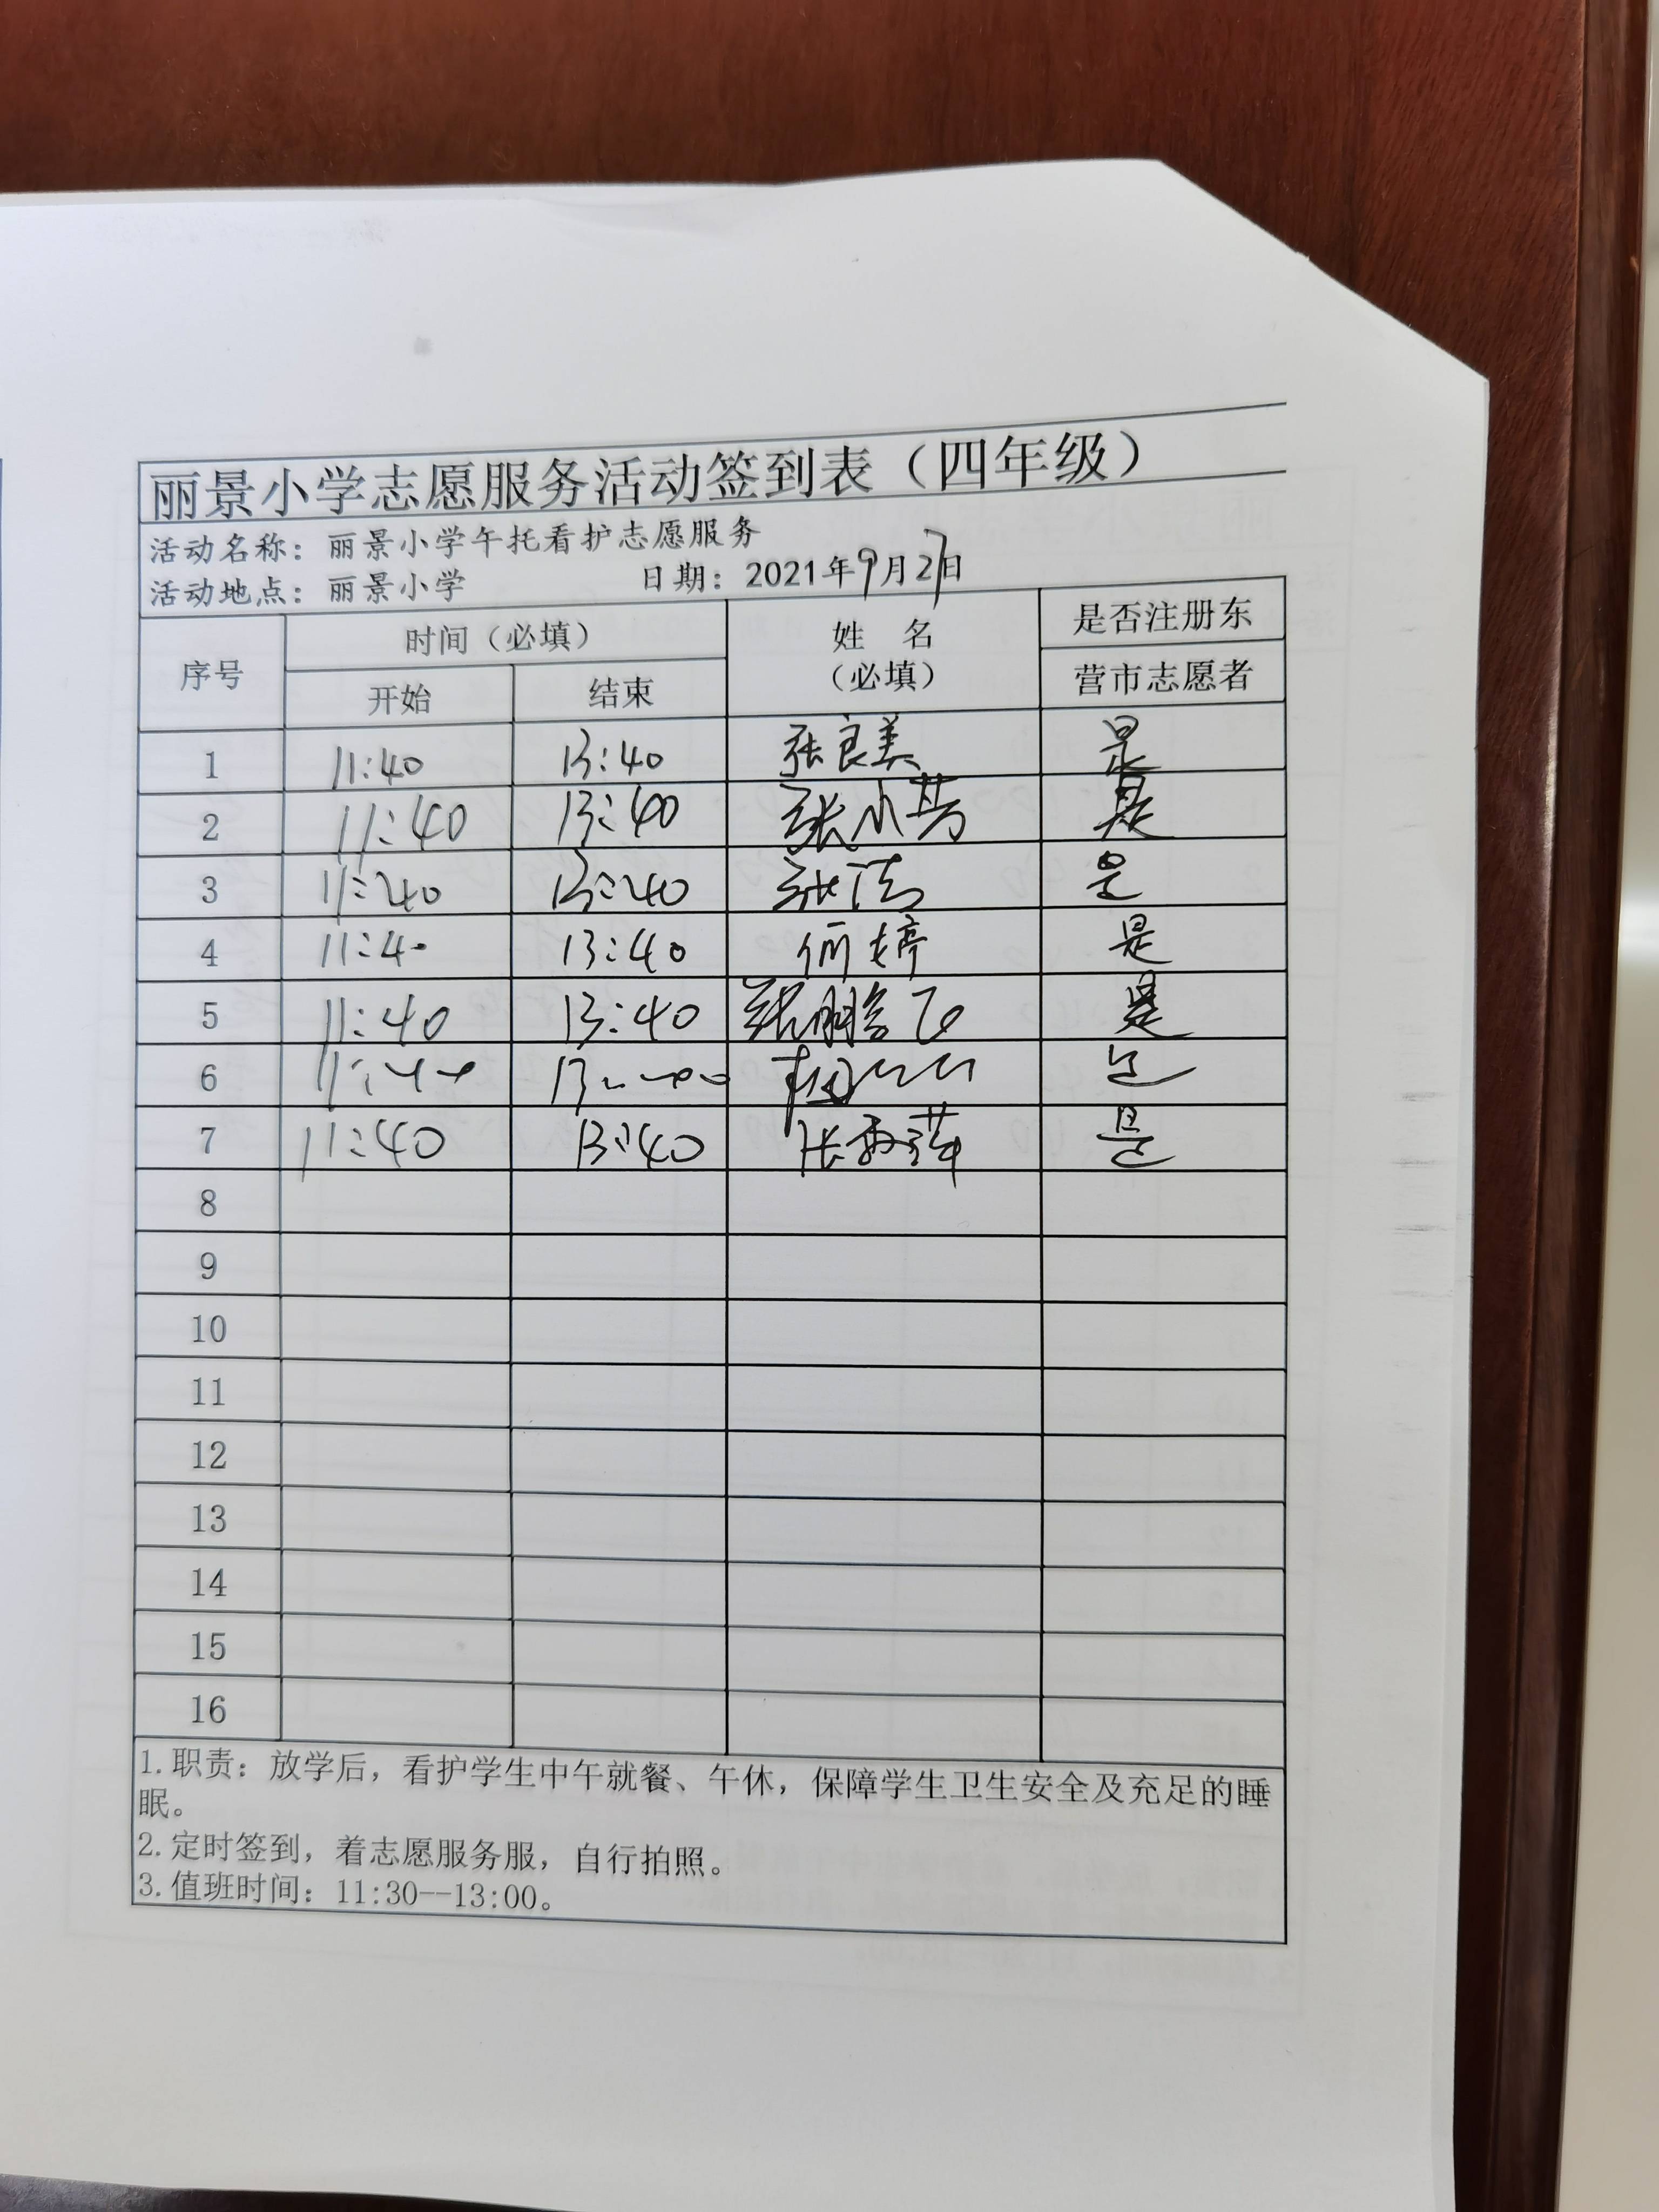 丽景小学志愿服务活动签到表（四年级）
活动名称：丽景小学午托看护志愿服务
活动地点：丽景小学 日期：2021年9月27日
序号 时间（必填） 姓 名（必填） 是否注册东营市志愿者
开始 结束
1 11:40 13:40 张良美 是
2 11:40 13:40 张小芳 是
3 11:40 13:40 张洁 是
4 11:40 13:40 何婷 是
5 11:40 13:40 张 是
6
7 11:40 13:40 张 是
8
9
10
11
12
13
14
15
16
1.职责：放学后，看护学生中午就餐、午休，保障学生卫生安全及充足的睡
眠。
2.定时签到，着志愿服务服，自行拍照。
3.值班时间：11:30--13:00。